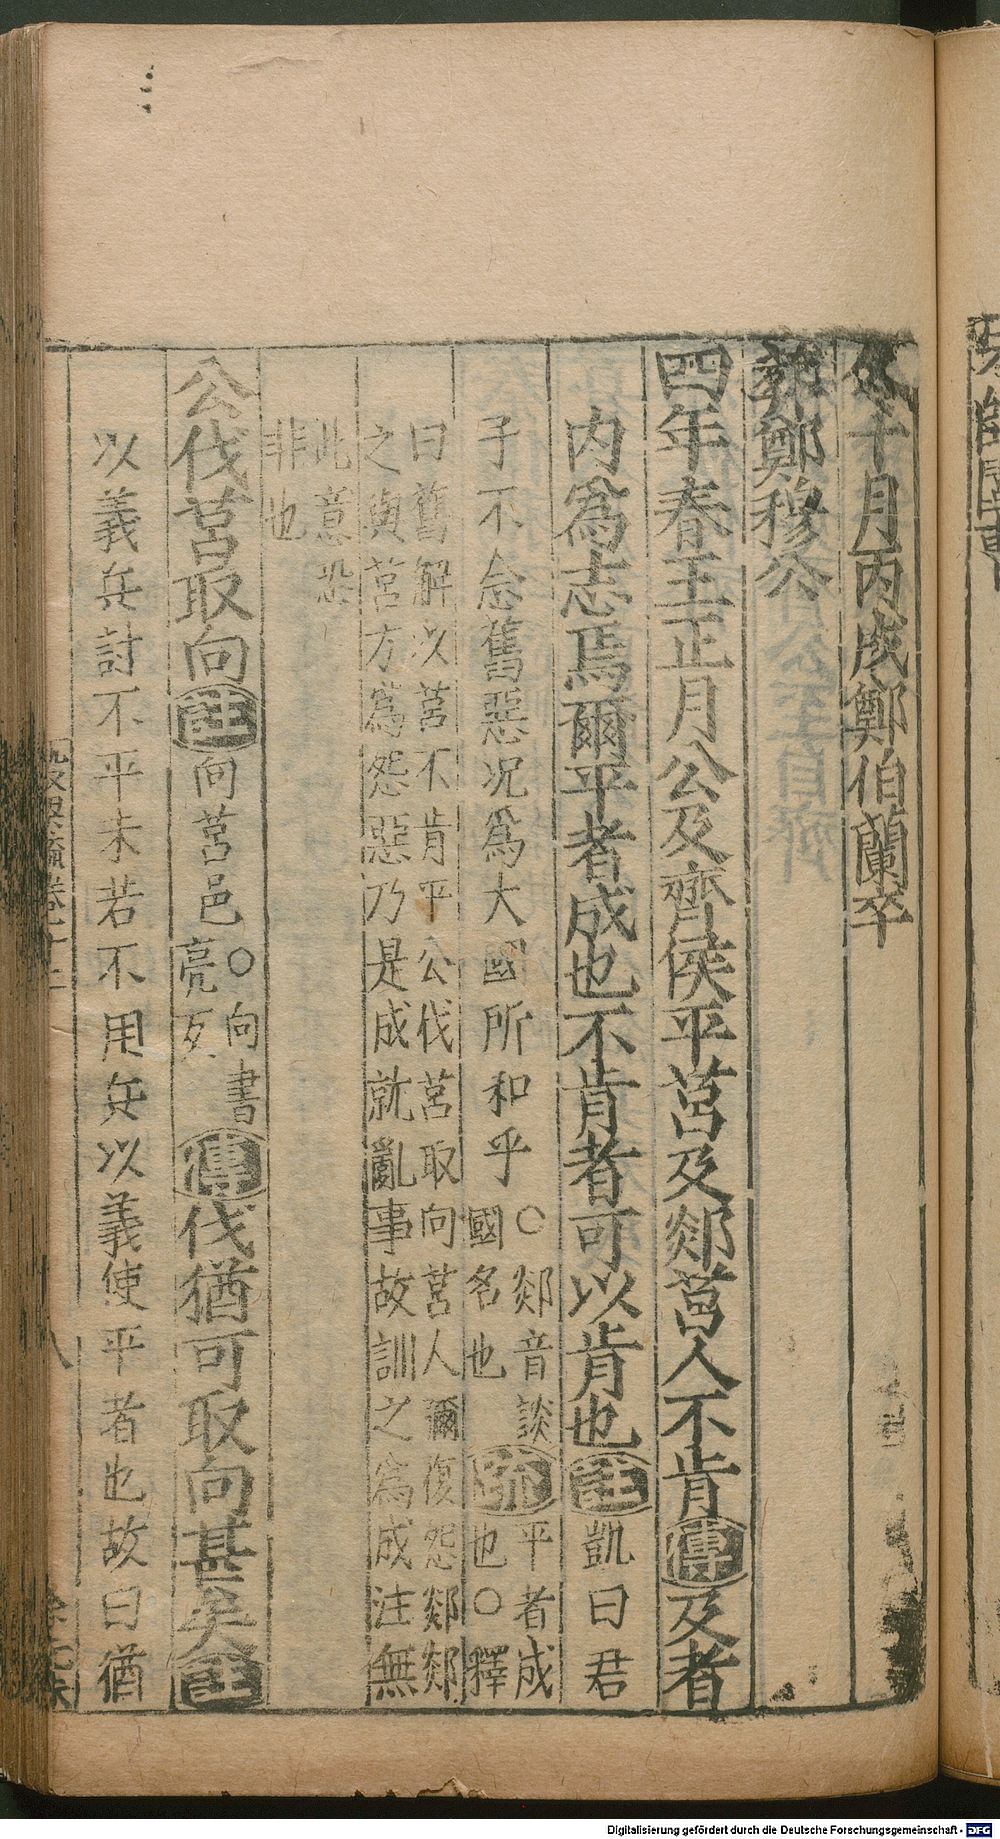 冬十月丙戌鄭伯蘭卒
葬鄭穆公
四年春王正月公及齊侯平莒及郯莒人不肯傳及者
内爲志焉爾平者成也不肯者可以肯也註凱曰君
子不念舊惡况爲大國所和乎○郯音談
國名也疏平者成
也○釋
曰舊解以莒不肯平公伐莒取向莒人彌復怨郯郯
之與莒方爲怨惡乃是成就亂事故訓之爲成注無
此意恐
非也
公伐莒取向註向莒邑○向書
亮反傳伐猶可取向甚矣註
以義兵討不平未若不用兵以義使平者也故曰猶
八
Digitalisierung gefördert durch die Deutsche Forschungsgemeinschaft - DFG